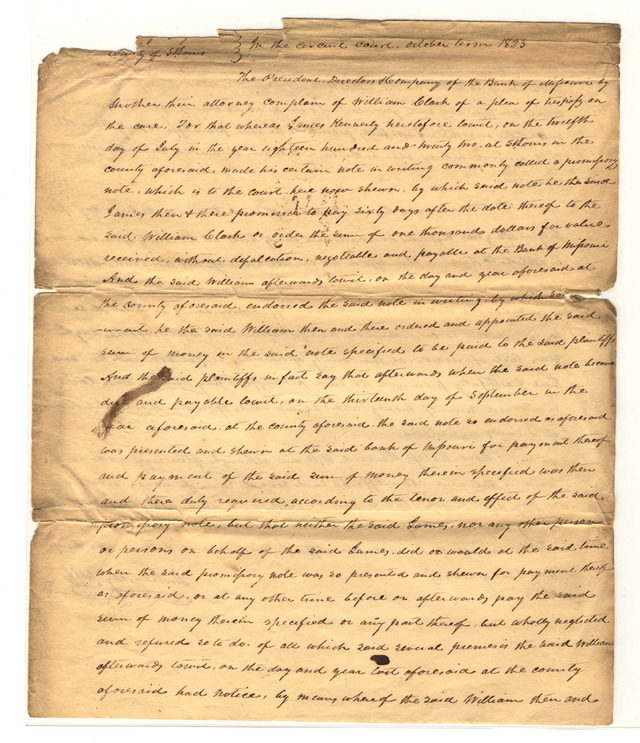 County of St Louis } In the circuit court. October term 1823
The President Directors & Company of the Bank of Missouri by
their attorney complain of William Clark of a plea of trespass on
the case. For that whereas James Kennerly heretofore towit, on the twelfth
day of July in the year eighteen hundred and twenty two, at St Louis in the
county aforesaid made his certain note in writing commonly called a promissory
note, which is to the court here now shewn. by which said note he the said
James then & there promised to pay sixty days after the date thereof to the
said William Clark or order the sum of one thousand dollars for value
received, without defalcation, negotiable and payable at the Bank of Missouri
And the said William afterwards towit, on the day and year aforesaid at
the County aforesaid, endorsed the said note in writing. by which
he the said William then and there ordered and appointed the said
sum of money in the said note specified to be paid to the said plaintiffs
And the said plaintiffs in fact say that afterwards when the said note became
due and payable towit, on the thirteenth day of September in the
year aforesaid. at the county aforesaid. the said note so endorsed as aforesaid
was presented and shewn at the said bank of Missouri for payment thereof
and payment of the said sum of money therein specified was then
and there duly required, according to the tenor and effect of the said
promissory note, but that neither the said James, nor any other person
or persons on behalf of the said James, did or would at the said time
when the said promissory note was so presented and shewn for payment thereof
as aforesaid, or at any other time before or afterwards pay the said
sum of money therein specified or any part thereof. but wholly neglected
and refused so to do. of all which said several premises the said William
afterwards towit, on the day and year last aforesaid at the county
aforesaid had notice, by means whereof the said William then and